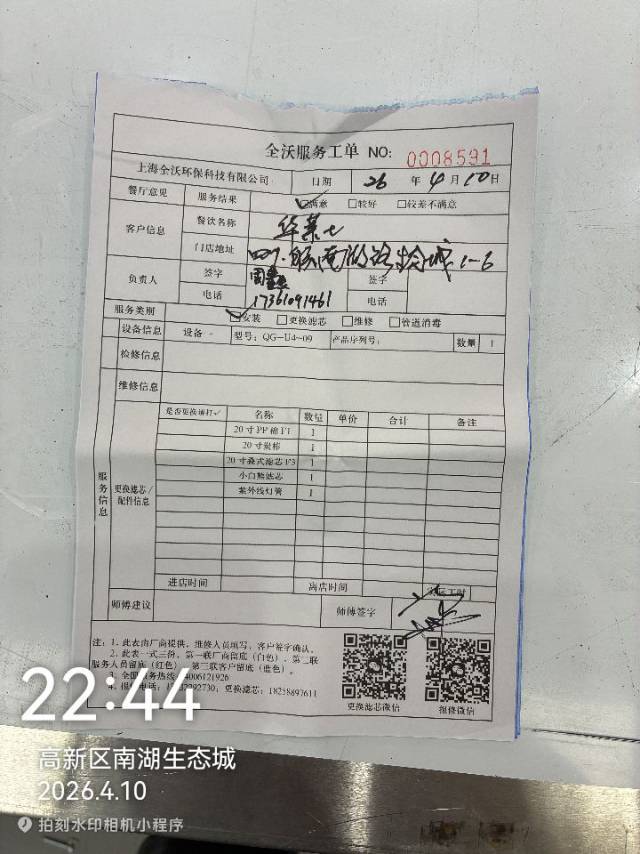 全沃服务工单 NO: 0008591
上海全沃环保科技有限公司 日期 26 年 4 月 10 日
餐厅意见 服务结果 ☑满意 □较好 □较差不满意
客户信息 餐饮名称 华莱士
门店地址 南湖路生态城 1-6
负责人 签字 周 签字
电话 17361091461 电话
服务类别 ☑安装 □更换滤芯 □维修 □管道消毒
设备信息 设备 型号: QG-U4-09 产品序列号: 数量 1
检修信息
维修信息
服务信息
更换滤芯/配件信息
是否更换请打✓ 名称 数量 单价 合计 备注
20寸PP棉 1
20寸 1
20寸叠式滤芯 1
小白熊滤芯 1
紫外线灯管 1
进店时间 离店时间
师傅建议 师傅签字
注: 1. 此表由厂商提供, 维修人员填写, 客户签字确认。
2. 此表一式三份, 第一联厂商留底(白色), 第二联
服务人员留底(红色), 第三联客户留底
全国服务热线: 4006121926
4. 报修电话: 更换滤芯: 18258697611
更换滤芯微信 报修微信
22:44
高新区南湖生态城
2026.4.10
拍刻水印相机小程序